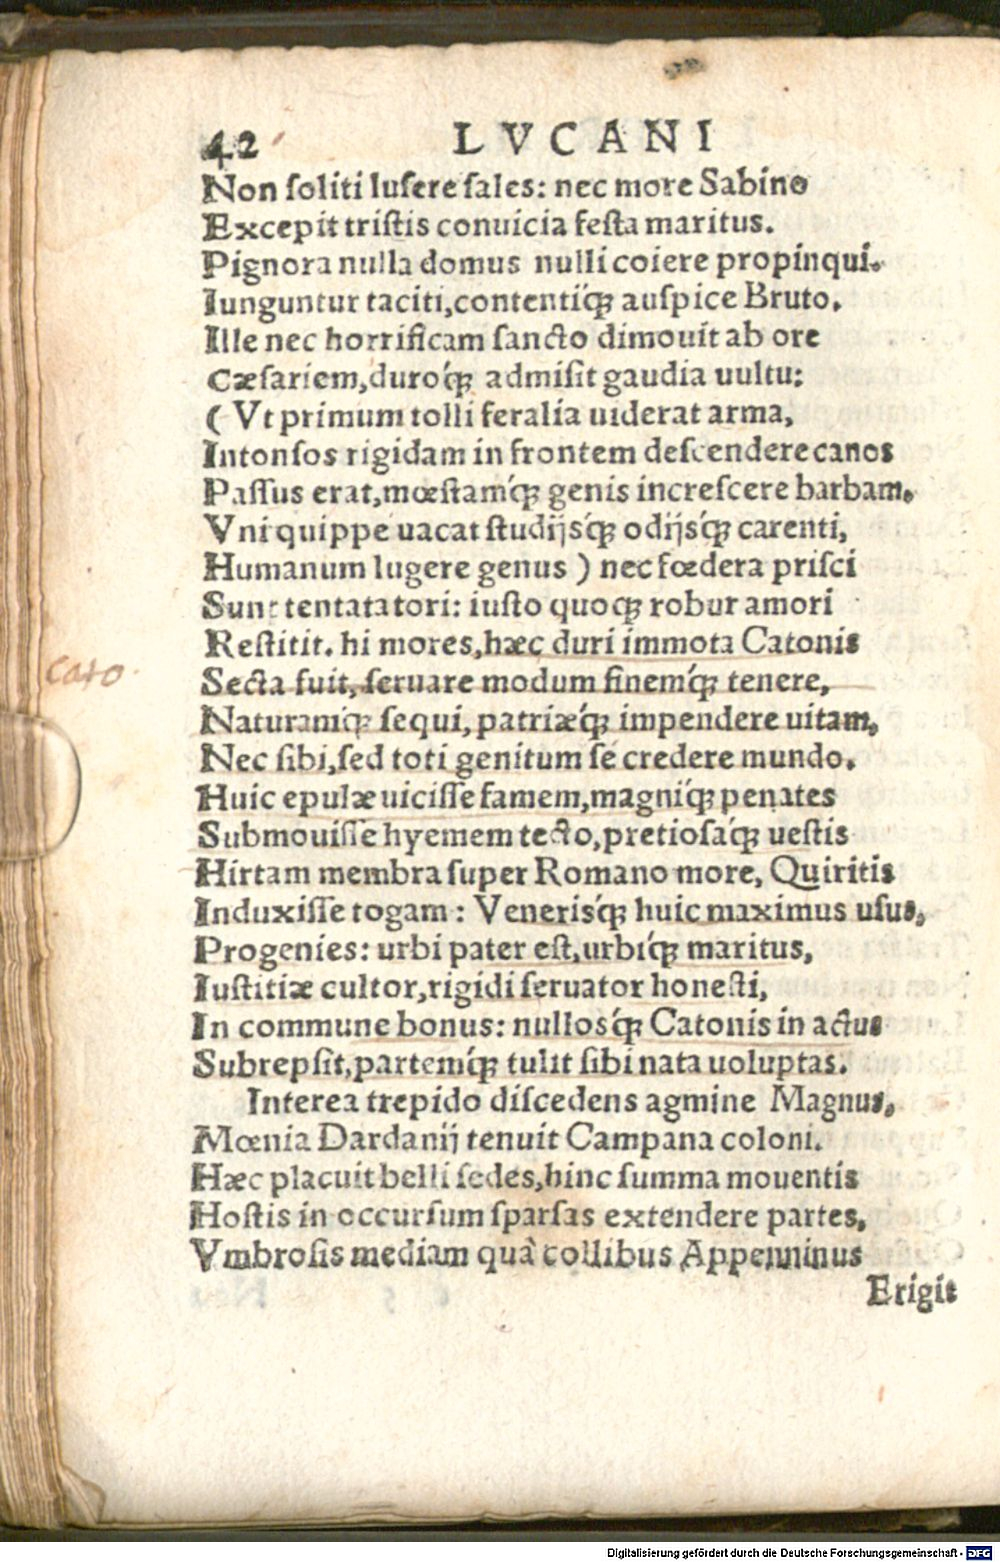 42 LVCANI
Non ſoliti luſere ſales: nec more Sabino
Excepit triſtis conuicia feſta maritus.
Pignora nulla domus nulli coiere propinqui.
Iunguntur taciti, contentiq́ꝫ auſpice Bruto.
Ille nec horrificam ſancto dimouit ab ore
Cæſariem, duroq́ꝫ admiſit gaudia uultu:
(Vt primum tolli feralia uiderat arma,
Intonſos rigidam in frontem deſcendere canos
Paſſus erat, mœſtamq́ꝫ genis increſcere barbam.
Vni quippe uacat ſtudijsq́ꝫ odijsq́ꝫ carenti,
Humanum lugere genus) nec fœdera priſci
Sunt tentata tori: iuſto quoqꝫ robur amori
Reſtitit. hi mores, hæc duri immota Catonis
Cato.
Secta fuit, ſeruare modum finemq́ꝫ tenere,
Naturamq́ꝫ ſequi, patriæq́ꝫ impendere uitam,
Nec ſibi, ſed toti genitum ſe credere mundo.
Huic epulæ uiciſſe famem, magniq́ꝫ penates
Submouiſſe hyemem tecto, pretioſaq́ꝫ ueſtis
Hirtam membra ſuper Romano more, Quiritis
Induxiſſe togam: Venerisq́ꝫ huic maximus uſus,
Progenies: urbi pater eſt, urbiq́ꝫ maritus,
Iuſtitiæ cultor, rigidi ſeruator honeſti,
In commune bonus: nullosq́ꝫ Catonis in actus
Subrepſit, partemq́ꝫ tulit ſibi nata uoluptas.
Interea trepido diſcedens agmine Magnus,
Mœnia Dardanij tenuit Campana coloni.
Hæc placuit belli ſedes, hinc ſumma mouentis
Hoſtis in occurſum ſparſas extendere partes,
Vmbroſis mediam quà collibus Appenninus
Erigit
Digitalisierung gefördert durch die Deutsche Forschungsgemeinschaft - DFG